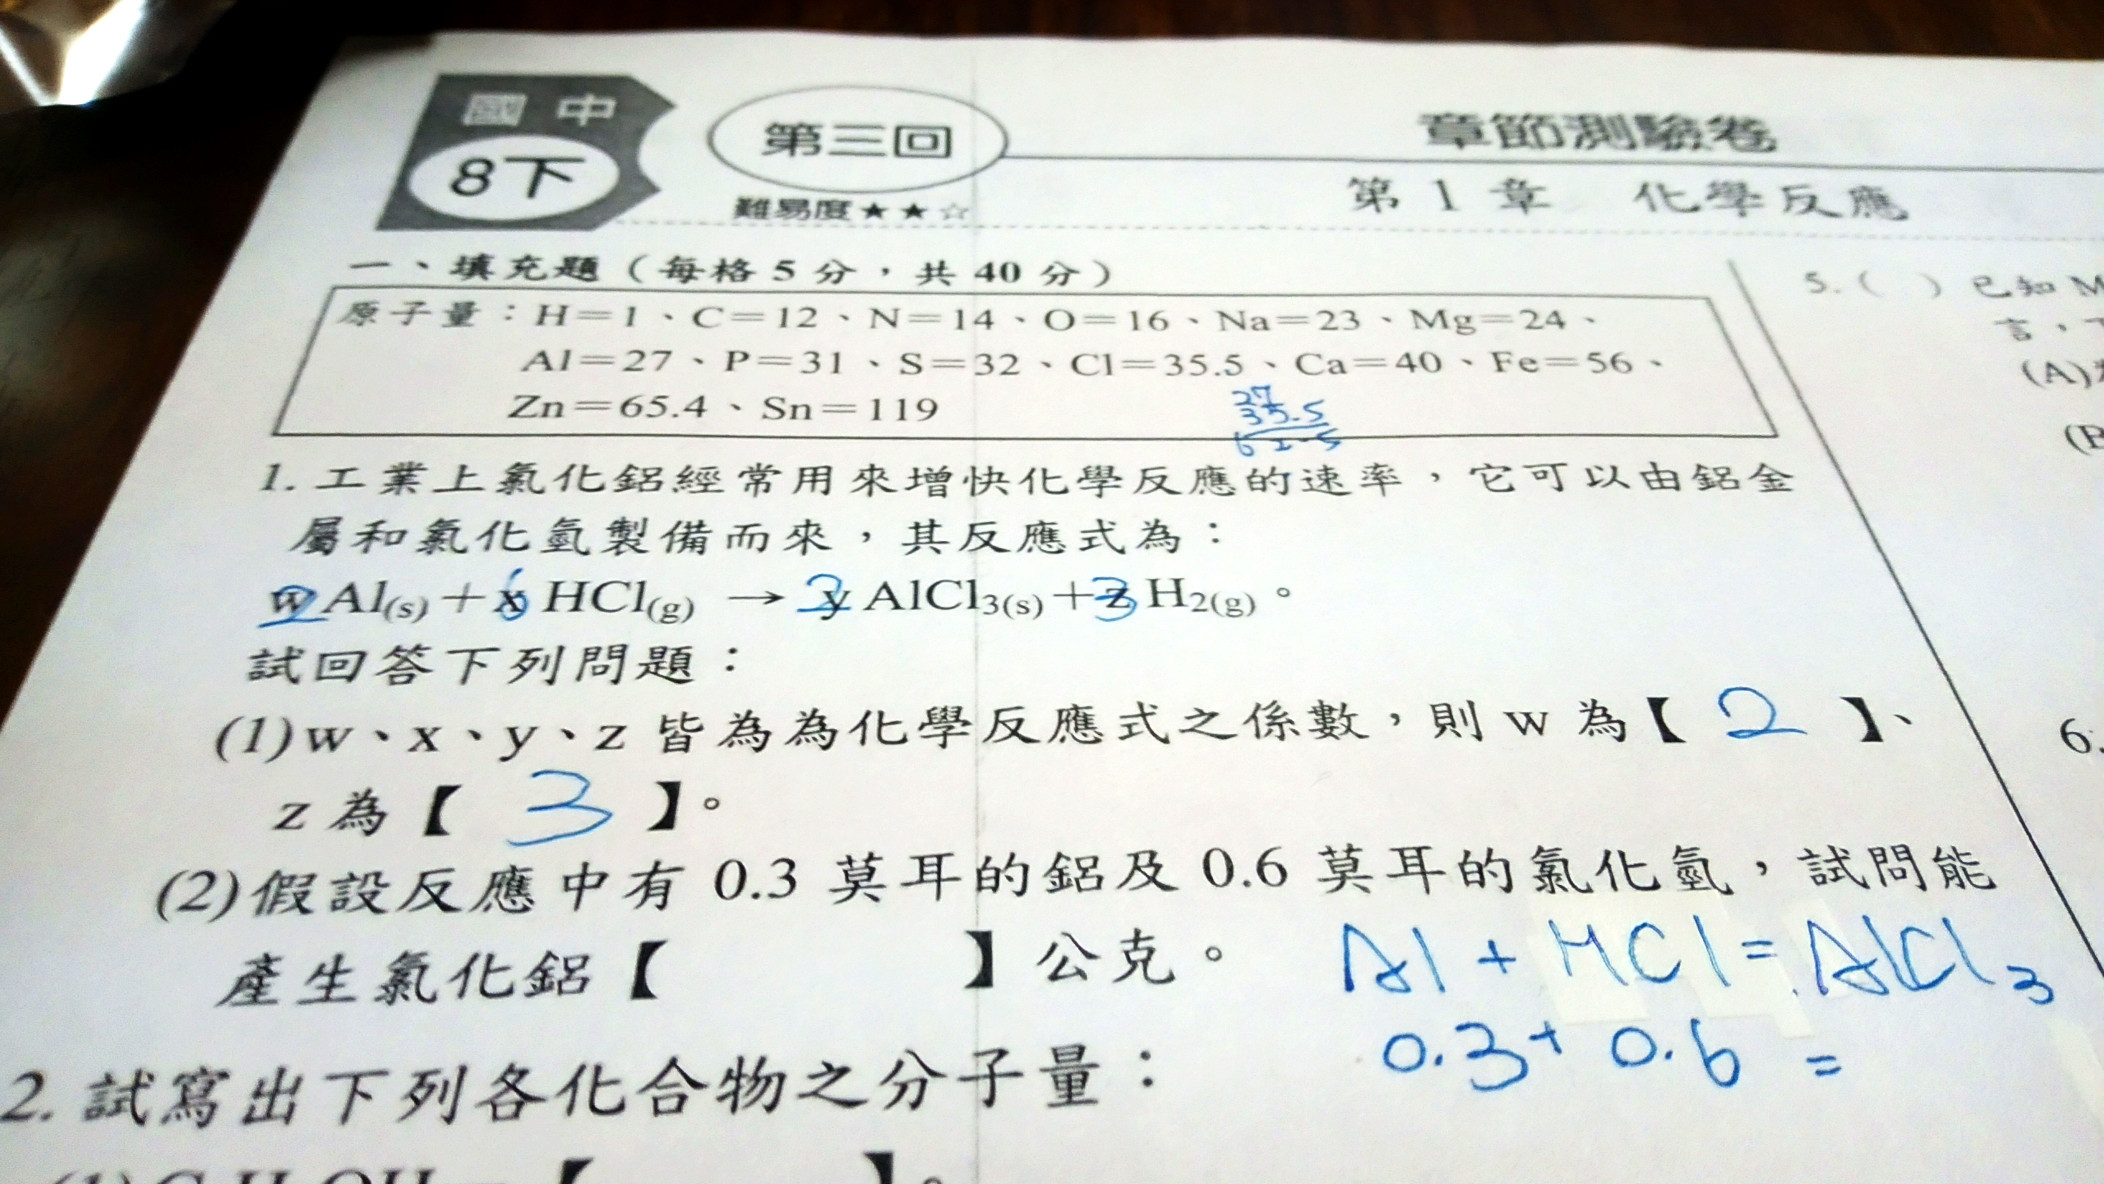 國中
8下
第三回
難易度★★☆
章節測驗卷
第1章 化學反應
一、填充題（每格5分，共40分）
原子量：H＝1、C＝12、N＝14、O＝16、Na＝23、Mg＝24、
Al＝27、P＝31、S＝32、Cl＝35.5、Ca＝40、Fe＝56、
Zn＝65.4、Sn＝119
27
35.5
62.5
1. 工業上氯化鋁經常用來增快化學反應的速率，它可以由鋁金
屬和氯化氫製備而來，其反應式為：
w 2 Al(s)＋x 6 HCl(g) → y 2 AlCl3(s)＋z 3 H2(g)。
試回答下列問題：
(1)w、x、y、z 皆為為化學反應式之係數，則 w 為【 2 】、
z 為【 3 】。
(2)假設反應中有 0.3 莫耳的鋁及 0.6 莫耳的氯化氫，試問能
產生氯化鋁【 】公克。
Al + HCl = AlCl3
0.3 + 0.6 =
2. 試寫出下列各化合物之分子量：
5.( ) 已知 M
言，
(A)
(B
6.